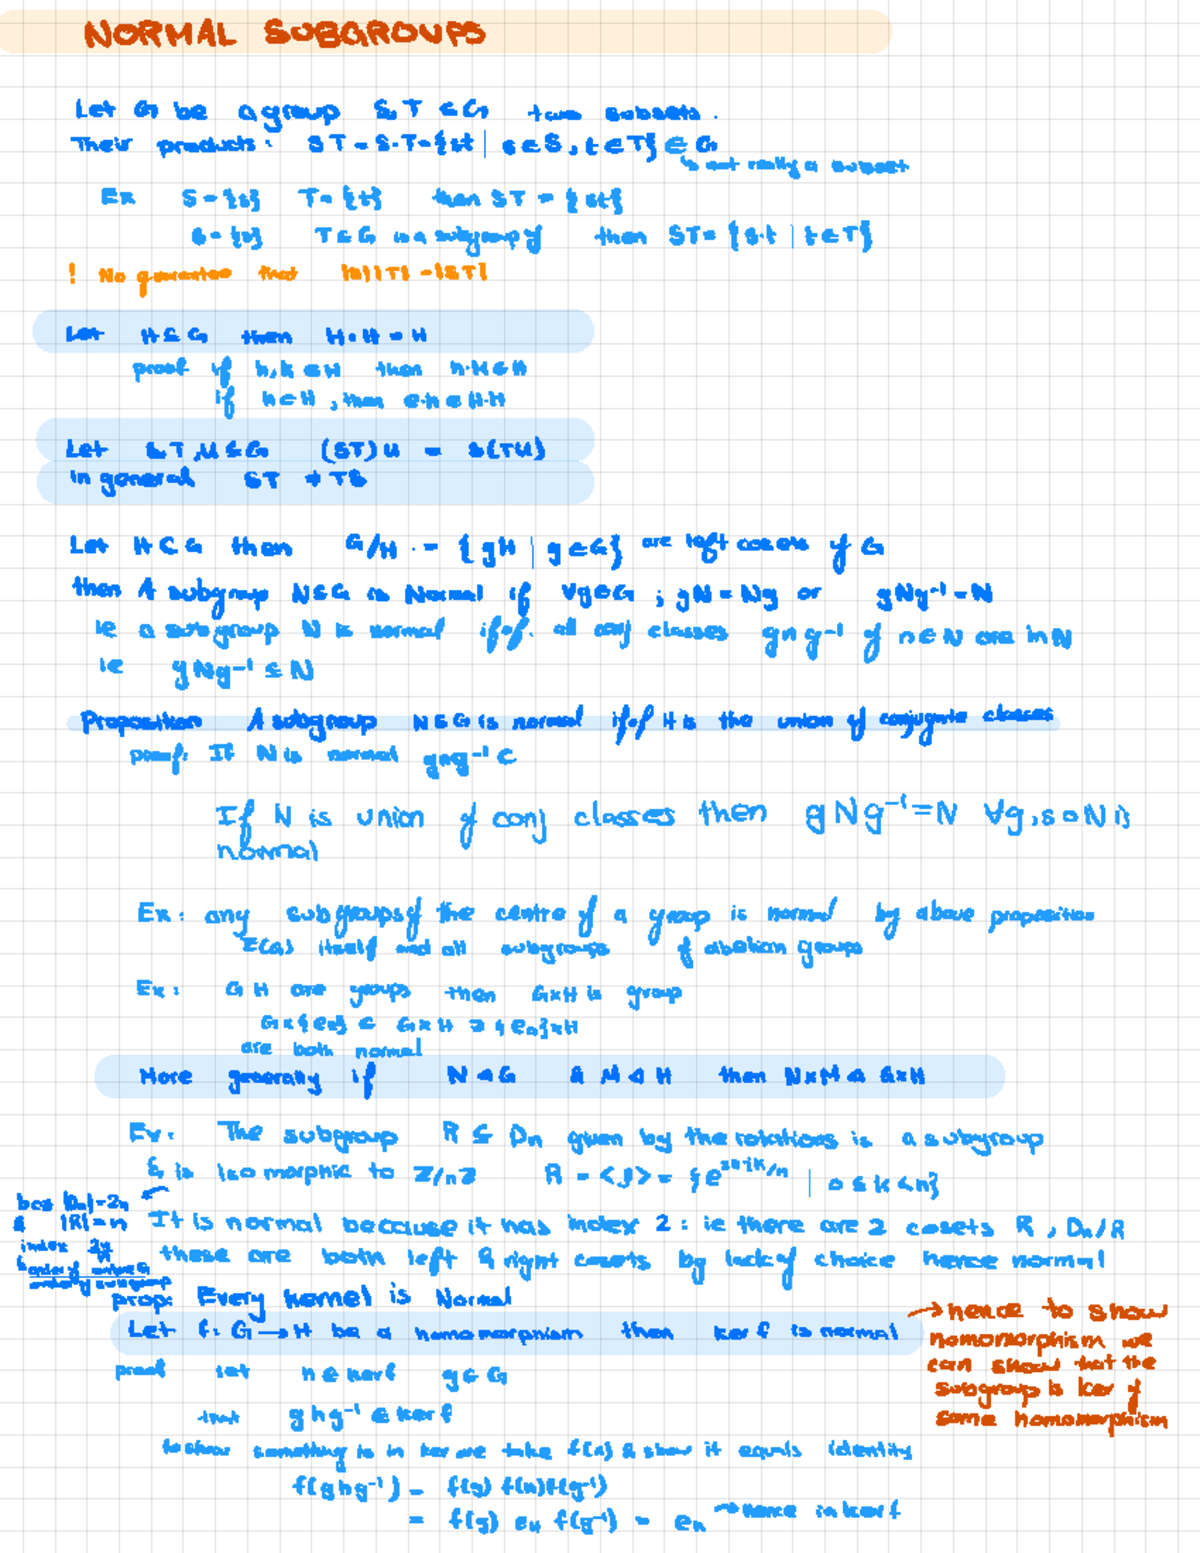 NORMAL SUBGROUPS
Let G be a group S, T ⊂ G two subsets.
Their products: ST = S·T = {st | s∈S, t∈T} ∈ G
↳ not really a subset
Ex S = {s} T = {t} then ST = {st}
S = {s} T ≤ G is a subgroup of then ST = {s·t | t∈T}
! No guarantee that |S||T| = |ST|
Let H ≤ G then H·H = H
proof if h,k ∈ H then h·k ∈ H
if h∈H, then e·h ∈ H·H
Let S,T,U ≤ G (ST)U = S(TU)
In general ST ≠ TS
Let H ⊂ G then G/H := {gH | g∈G} are left cosets of G
then A subgroup N≤G is Normal if ∀g∈G ; gN = Ng or gNg⁻¹ = N
ie a subgroup N is normal iff. all conj classes gng⁻¹ of n∈N are in N
ie gNg⁻¹ ≤ N
Proposition A subgroup N≤G is normal iff it is the union of conjugate classes
proof: If N is normal gng⁻¹ ⊂
If N is union of conj classes then gNg⁻¹=N ∀g, so N is
normal
Ex: any subgroups of the centre of a group is normal by above proposition
Z(G) itself and all subgroups of abelian groups
Ex: G H are groups then G×H is group
G×{e_H} ⊂ G×H ⊃ {e_G}×H
are both normal
More generally if N ◁ G & M ◁ H then N×M ◁ G×H
Ex: The subgroup R ≤ Dn given by the rotations is a subgroup
& is isomorphic to Z/nZ R = <ρ> = {e^{2πik/n} | 0 ≤ k < n}
bcs |Dn|=2n
& |R|=n
It is normal because it has index 2: ie there are 2 cosets R, Dn/R
index 2n/n
these are both left & right cosets by lack of choice hence normal
↳ order of entire G
order of subgroup
prop: Every kernel is Normal
Let f: G→H be a homomorphism then ker f is normal
→ hence to show
homomorphism we
can show that the
subgroup is ker of
some homomorphism
proof let h ∈ ker f g ∈ G
that ghg⁻¹ ∈ ker f
to show something is in ker we take f(x) & show it equals identity
f(ghg⁻¹) = f(g) f(h) f(g⁻¹)
= f(g) e_H f(g⁻¹) = e_H → hence in ker f